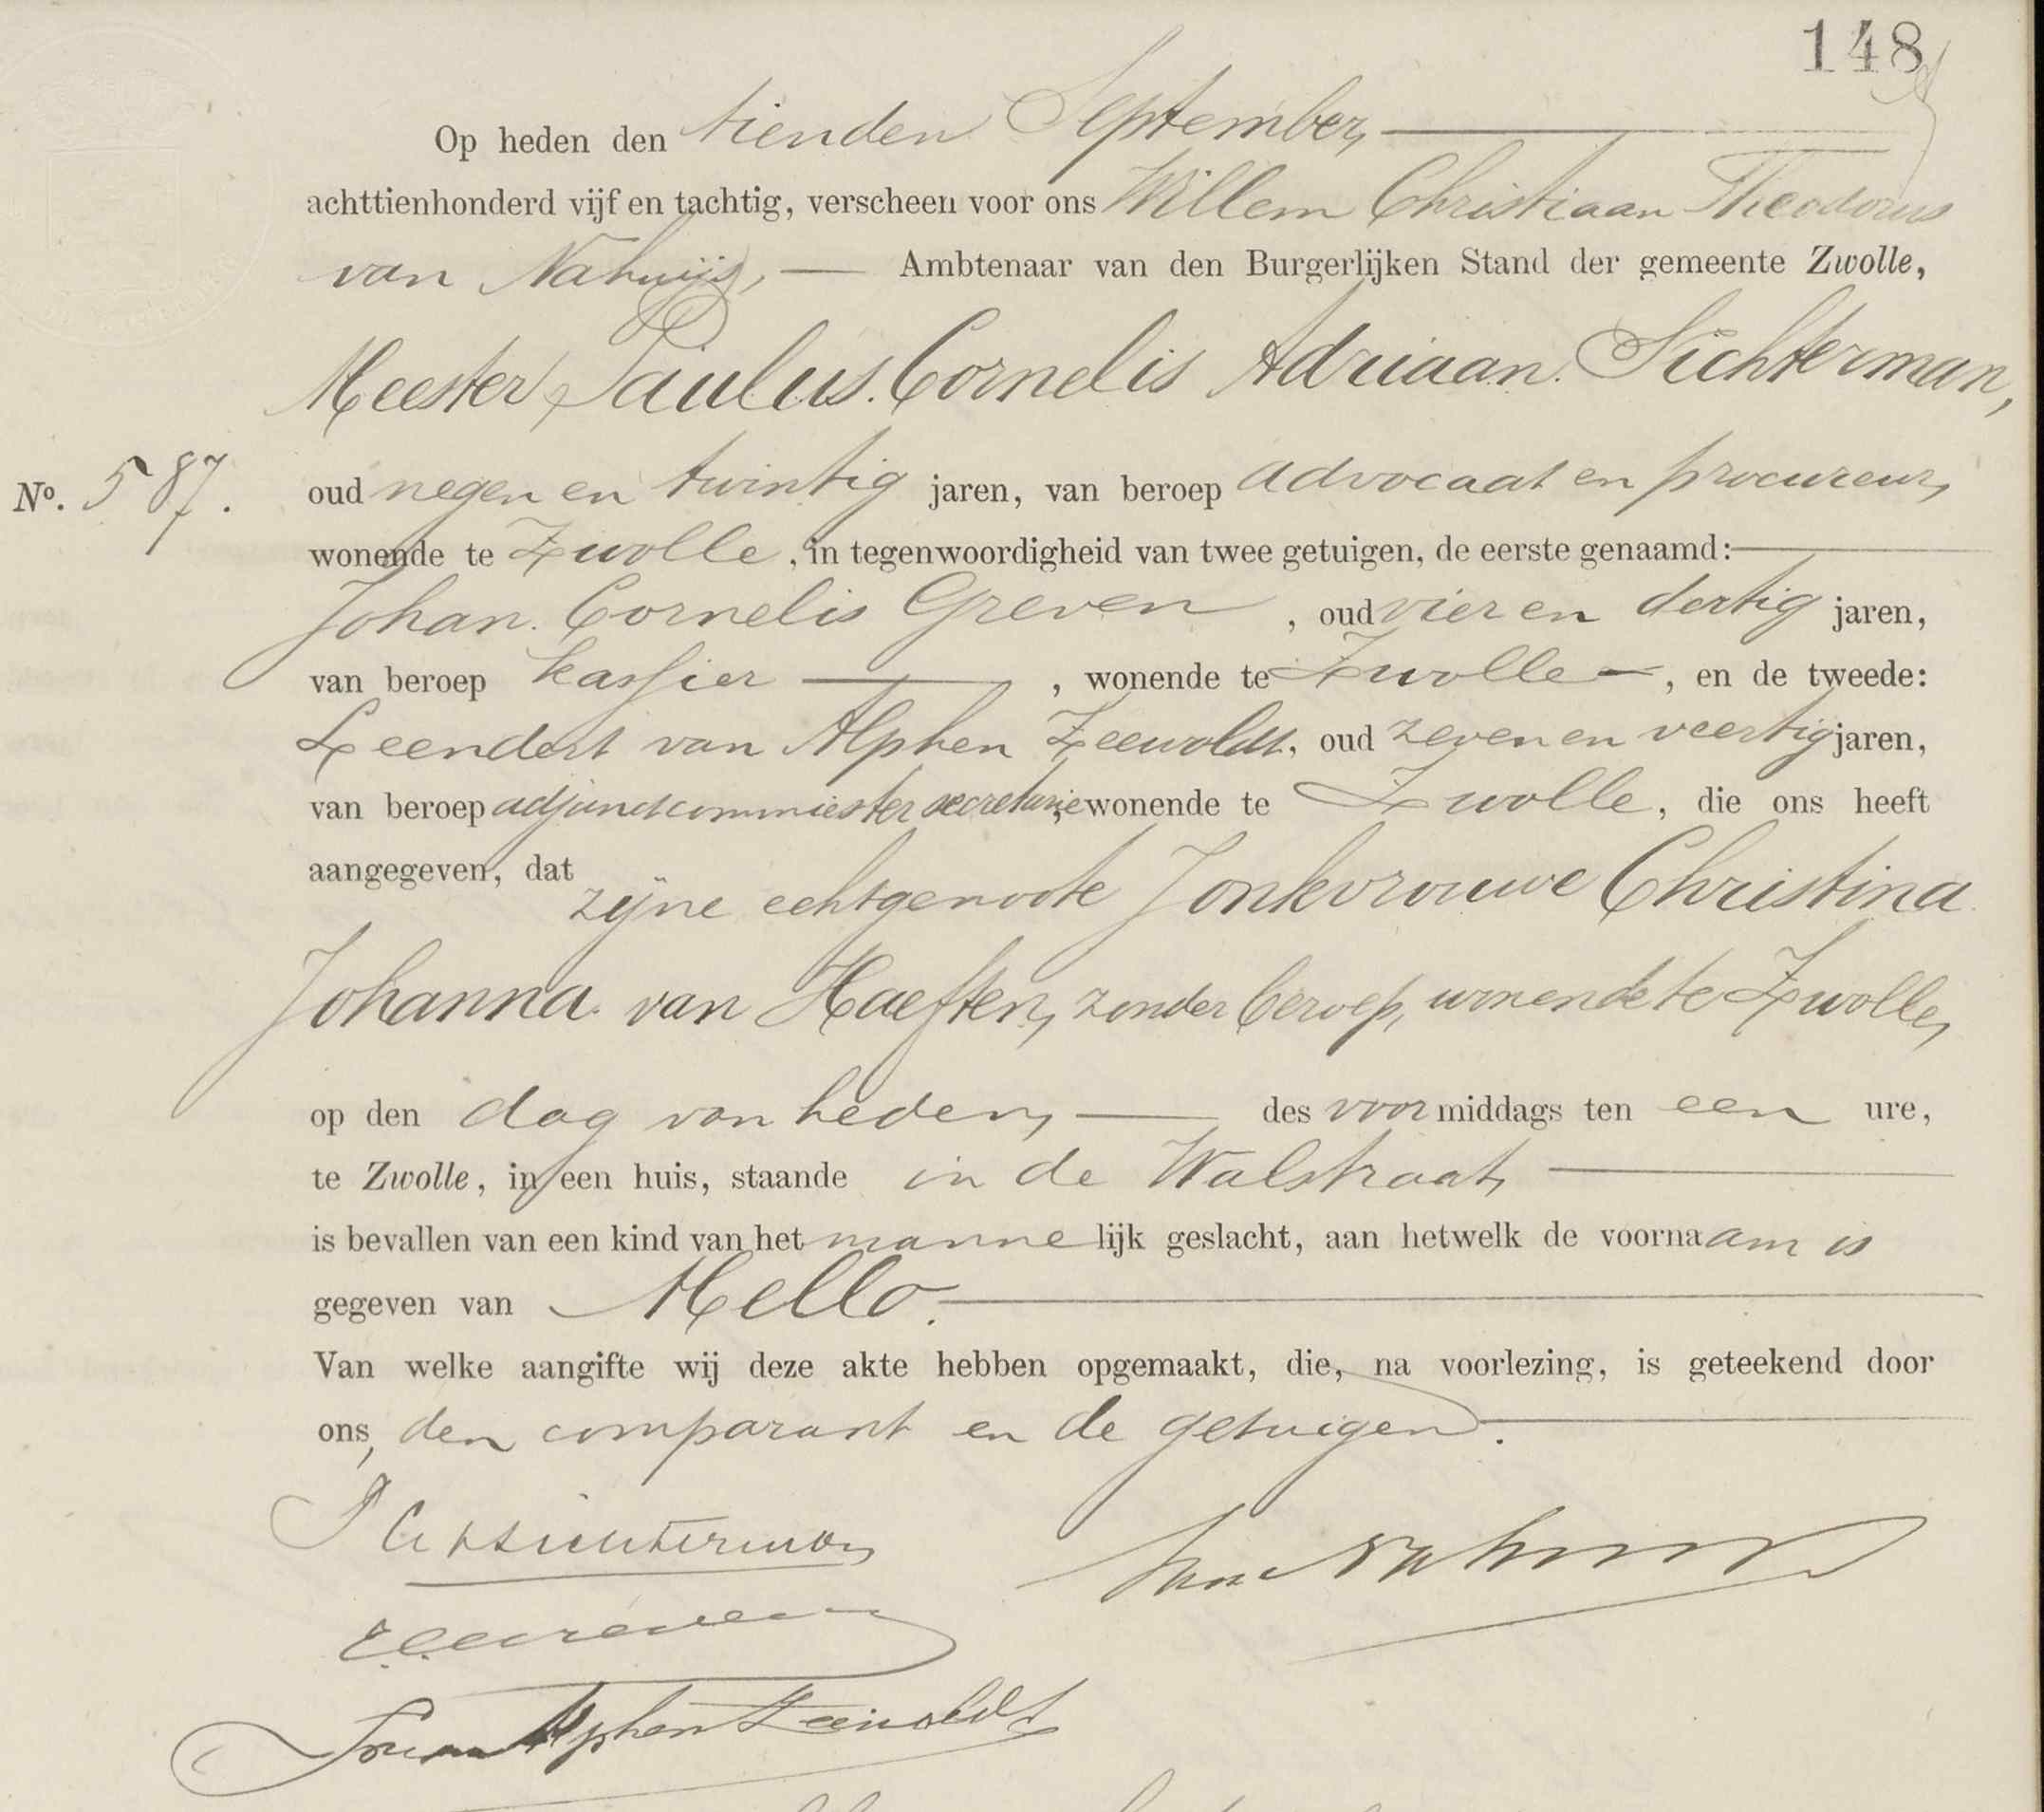 148
Op heden den tienden September,
achttienhonderd vijf en tachtig, verscheen voor ons Willem Christiaan Theodorus
van Nahuijs, Ambtenaar van den Burgerlijken Stand der gemeente Zwolle,
Meester Paulus Cornelis Adriaan Sichterman,
No. 587. oud negen en twintig jaren, van beroep advocaat en procureur,
wonende te Zwolle, in tegenwoordigheid van twee getuigen, de eerste genaamd:
Johan Cornelis Greven, oud vier en dertig jaren,
van beroep kassier, wonende te Zwolle, en de tweede:
Leendert van Alphen Zeewoldt, oud zeven en veertig jaren,
van beroep adjunctcommiester secretarie, wonende te Zwolle, die ons heeft
aangegeven, dat zijne echtgenoote Jonkvrouwe Christina
Johanna van Haeften, zonder beroep, wonende te Zwolle,
op den dag van heden, des voormiddags ten een ure,
te Zwolle, in een huis, staande in de Walstraat,
is bevallen van een kind van het mannelijk geslacht, aan hetwelk de voornaam is
gegeven van Mello.
Van welke aangifte wij deze akte hebben opgemaakt, die, na voorlezing, is geteekend door
ons, den comparant en de getuigen.
P C A Sichterman van Nahuys
J.C. Greven
L van Alphen Zeewoldt